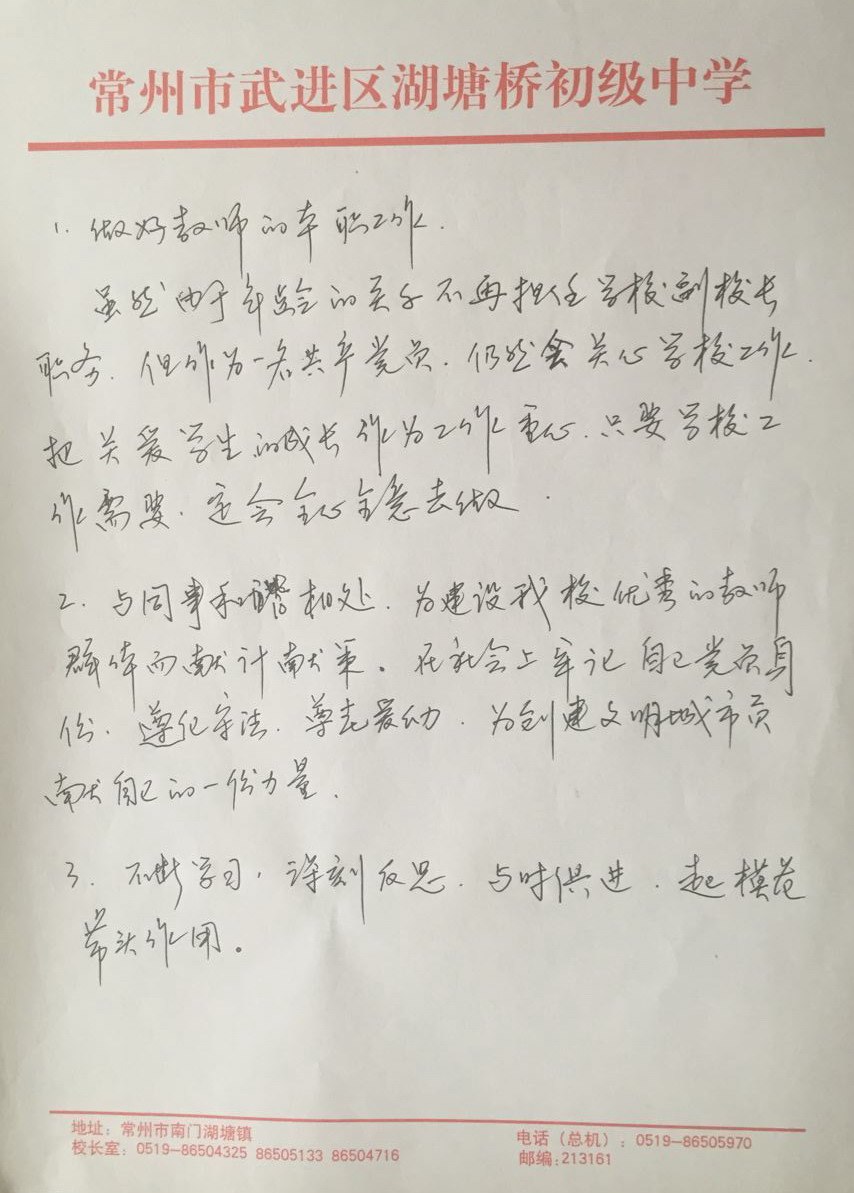 常州市武进区湖塘桥初级中学
1. 做好教师的本职工作.
虽然由于年龄的关系不再担任学校副校长
职务. 但作为一名共产党员. 仍然会关心学校工作.
把关爱学生的成长作为工作重心. 只要学校工
作需要. 定会全心全意去做.
2. 与同事和谐相处. 为建设我校优秀的教师
群体而献计献策。在社会上牢记自己党员身
份. 遵纪守法. 尊老爱幼. 为创建文明城市贡
献自己的一份力量.
3. 不断学习, 深刻反思. 与时俱进. 起模范
带头作用。
地址: 常州市南门湖塘镇
校长室: 0519—86504325 86505133 86504716
电话（总机）: 0519—86505970
邮编:213161